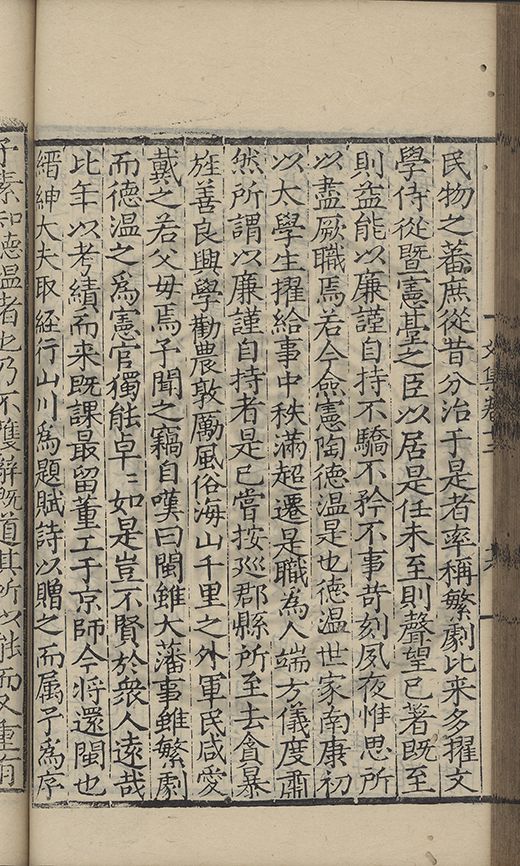 民物之蕃庶從昔分治于是者率稱繁劇比来多擢文
學侍從暨憲䑓之臣以居是任未至則聲望已著既至
則益能以廉謹自持不驕不矜不事苛刻夙夜惟思所
以盡厥職焉若今僉憲陶德温是也德温世家南康初
以大學生擢給事中秩滿超遷是職為人端方儀度肅
然所謂以廉謹自持者是已嘗按廵郡縣所至去貪暴
旌善良興學勸農敦厲風俗海山千里之外軍民咸愛
戴之若父母焉予聞之竊自嘆曰閩雖大藩事雖繁劇
而德温之為憲官獨能卓〻如是豈不賢於衆人遠哉
比年以考績而来既課最留董工于京師今将還閩也
縉紳大夫取経行山川為題賦詩以贈之而属予為序
予素知德温者也乃不
辭既道其所以能而又重有